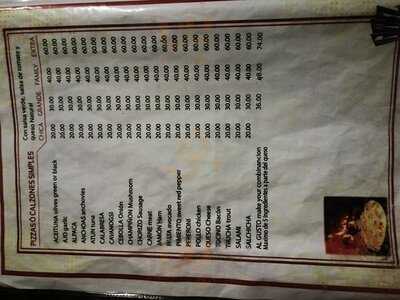 PIZZAS O CALZONES SIMPLES
Con salsa verde, salsa de tomate y
queso Natural
CHICA GRANDE FAMILY EXTRA
ACEITUNA olives green or black 20.00 30.00 40.00 60.00
AJO garlic 20.00 30.00 40.00 60.00
ALPACA 20.00 30.00 40.00 60.00
ANCHOAS anchovies 20.00 30.00 40.00 60.00
ATUN tuna 20.00 30.00 40.00 60.00
CALABRESA 20.00 30.00 40.00 60.00
20.00 30.00 40.00 60.00
CEBOLLA Onión 20.00 30.00 40.00 60.00
CHAMPIÑON Mushroom 20.00 30.00 40.00 60.00
CHORIZO Sausage 20.00 30.00 40.00 60.00
CARNE meat 20.00 30.00 40.00 60.00
JAMON Ham 20.00 30.00 40.00 60.00
PALTA avocado 20.00 30.00 40.00 60.00
PIMIENTO sweet red pepper 20.00 30.00 40.00 60.00
PEPERONI 20.00 30.00 40.00 60.00
POLLO chicken 20.00 30.00 40.00 60.00
QUESO Cheese 20.00 30.00 40.00 60.00
TOCINO Bacón 20.00 30.00 40.00 60.00
TRUCHA trout 20.00 30.00 40.00 60.00
SALAMI 20.00 30.00 40.00 60.00
SALCHICHA 20.00 30.00 40.00 60.00
AL GUSTO make your combinancion 36.00 48.00 74.00
Máximo de 3 ingredientes a parte del queso